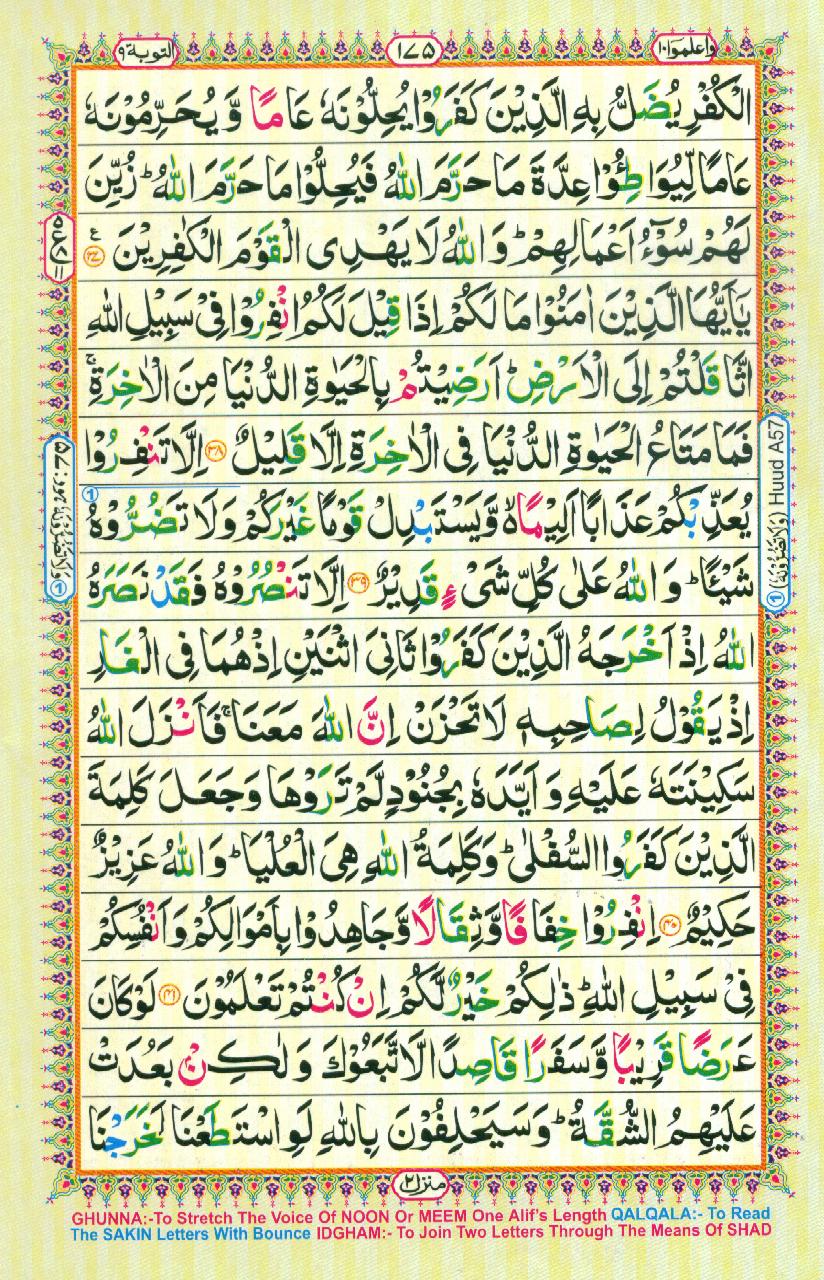 واعلموا ١٠
١٧٥
التوبة ٩
الْكُفْرِ يُضَلُّ بِهِ الَّذِيْنَ كَفَرُوْا يُحِلُّوْنَهٗ عَامًا وَّ يُحَرِّمُوْنَهٗ
عَامًا لِّيُوَاطِـُٔوْا عِدَّةَ مَا حَرَّمَ اللّٰهُ فَيُحِلُّوْا مَا حَرَّمَ اللّٰهُ ؕ زُيِّنَ
لَهُمْ سُوْٓءُ اَعْمَالِهِمْ ؕ وَ اللّٰهُ لَا يَهْدِى الْقَوْمَ الْكٰفِرِيْنَ ع ۳۷
يٰۤاَيُّهَا الَّذِيْنَ اٰمَنُوْا مَا لَكُمْ اِذَا قِيْلَ لَكُمُ انْفِرُوْا فِىْ سَبِيْلِ اللّٰهِ
اثَّاقَلْتُمْ اِلَى الْاَرْضِ ؕ اَرَضِيْتُمْ بِالْحَيٰوةِ الدُّنْيَا مِنَ الْاٰخِرَةِ ۚ
فَمَا مَتَاعُ الْحَيٰوةِ الدُّنْيَا فِى الْاٰخِرَةِ اِلَّا قَلِيْلٌ ۳۸ اِلَّا تَنْفِرُوْا
يُعَذِّبْكُمْ عَذَابًا اَلِيْمًا ۙ وَّ يَسْتَبْدِلْ قَوْمًا غَيْرَكُمْ وَلَا تَضُرُّوْهُ
شَيْـًٔا ؕ وَ اللّٰهُ عَلٰى كُلِّ شَىْءٍ قَدِيْرٌ ۳۹ اِلَّا تَنْصُرُوْهُ فَقَدْ نَصَرَهُ
اللّٰهُ اِذْ اَخْرَجَهُ الَّذِيْنَ كَفَرُوْا ثَانِىَ اثْنَيْنِ اِذْ هُمَا فِى الْغَارِ
اِذْ يَقُوْلُ لِصَاحِبِهٖ لَا تَحْزَنْ اِنَّ اللّٰهَ مَعَنَا ۚ فَاَنْزَلَ اللّٰهُ
سَكِيْنَتَهٗ عَلَيْهِ وَ اَيَّدَهٗ بِجُنُوْدٍ لَّمْ تَرَوْهَا وَجَعَلَ كَلِمَةَ
الَّذِيْنَ كَفَرُوا السُّفْلٰى ؕ وَكَلِمَةُ اللّٰهِ هِىَ الْعُلْيَا ؕ وَ اللّٰهُ عَزِيْزٌ
حَكِيْمٌ ۴۰ اِنْفِرُوْا خِفَافًا وَّ ثِقَالًا وَّ جَاهِدُوْا بِاَمْوَالِكُمْ وَ اَنْفُسِكُمْ
فِىْ سَبِيْلِ اللّٰهِ ؕ ذٰلِكُمْ خَيْرٌ لَّكُمْ اِنْ كُنْتُمْ تَعْلَمُوْنَ ۴۱ لَوْ كَانَ
عَرَضًا قَرِيْبًا وَّ سَفَرًا قَاصِدًا لَّاتَّبَعُوْكَ وَ لٰكِنْۢ بَعُدَتْ
عَلَيْهِمُ الشُّقَّةُ ؕ وَ سَيَحْلِفُوْنَ بِاللّٰهِ لَوِ اسْتَطَعْنَا لَخَرَجْنَا
Huud A57
منزل ٢
GHUNNA:-To Stretch The Voice Of NOON Or MEEM One Alif's Length QALQALA:- To Read
The SAKIN Letters With Bounce IDGHAM:- To Join Two Letters Through The Means Of SHAD